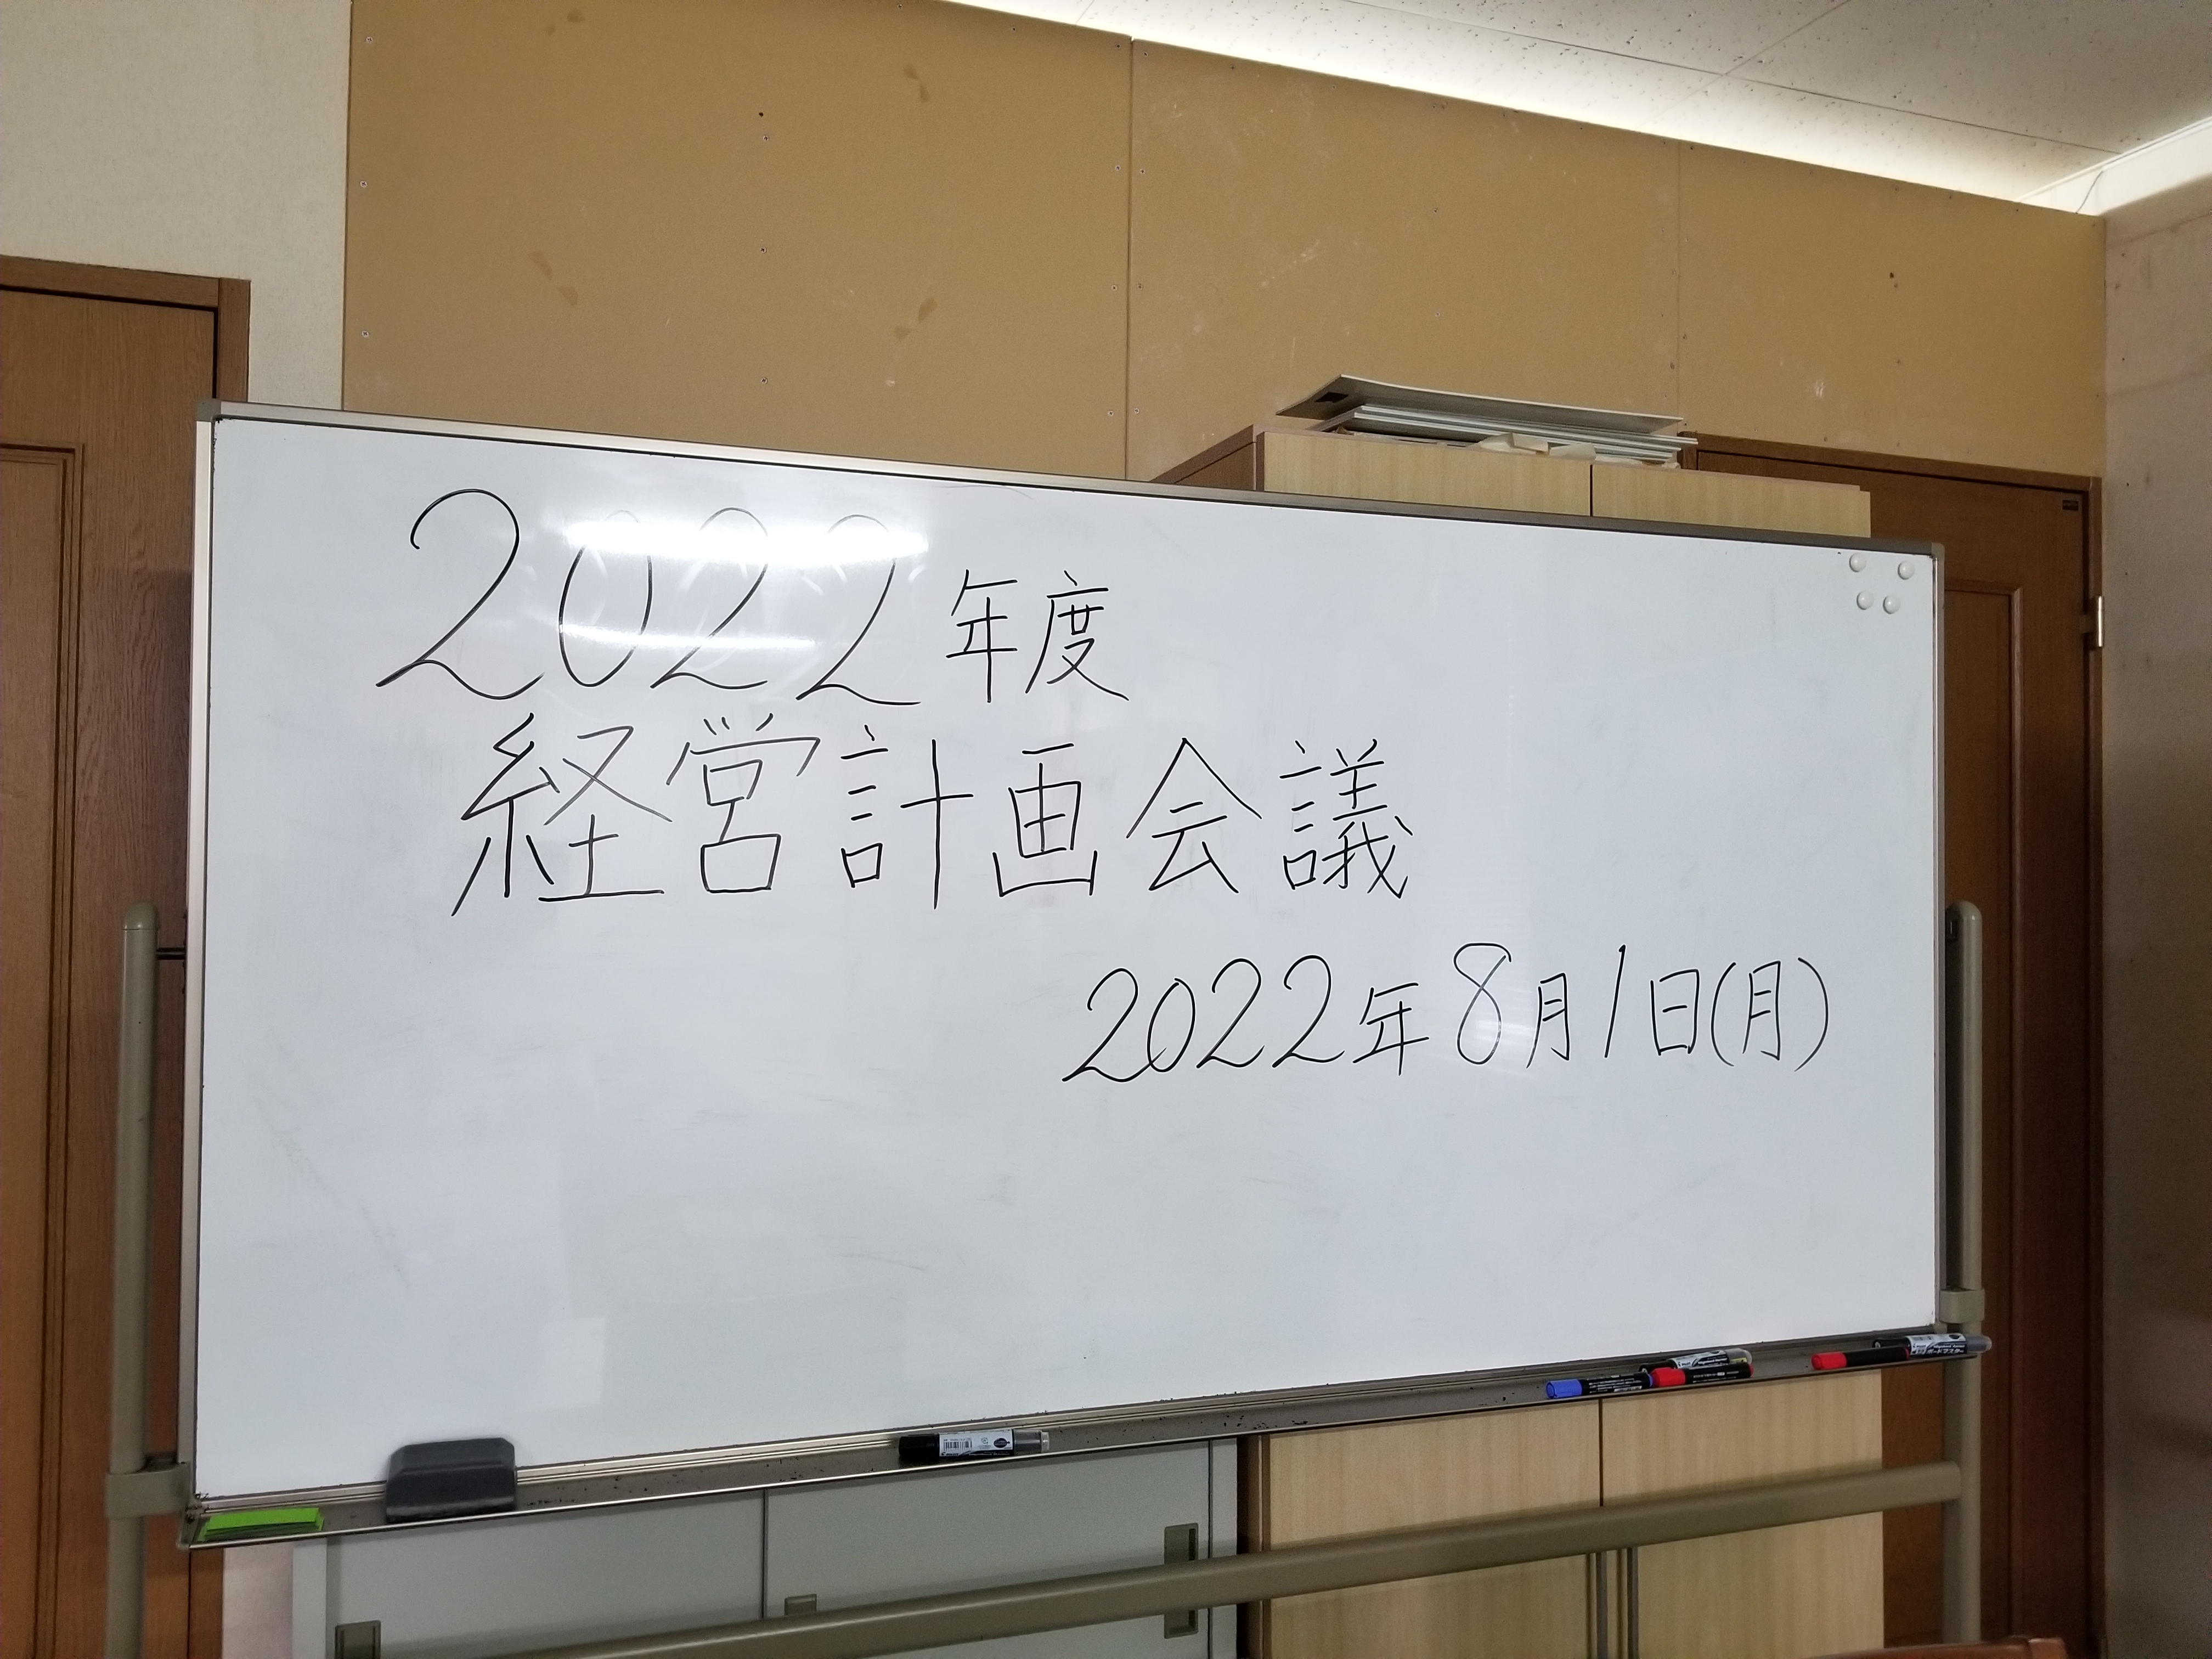 2022年度
経営計画会議
2022年8月1日(月)